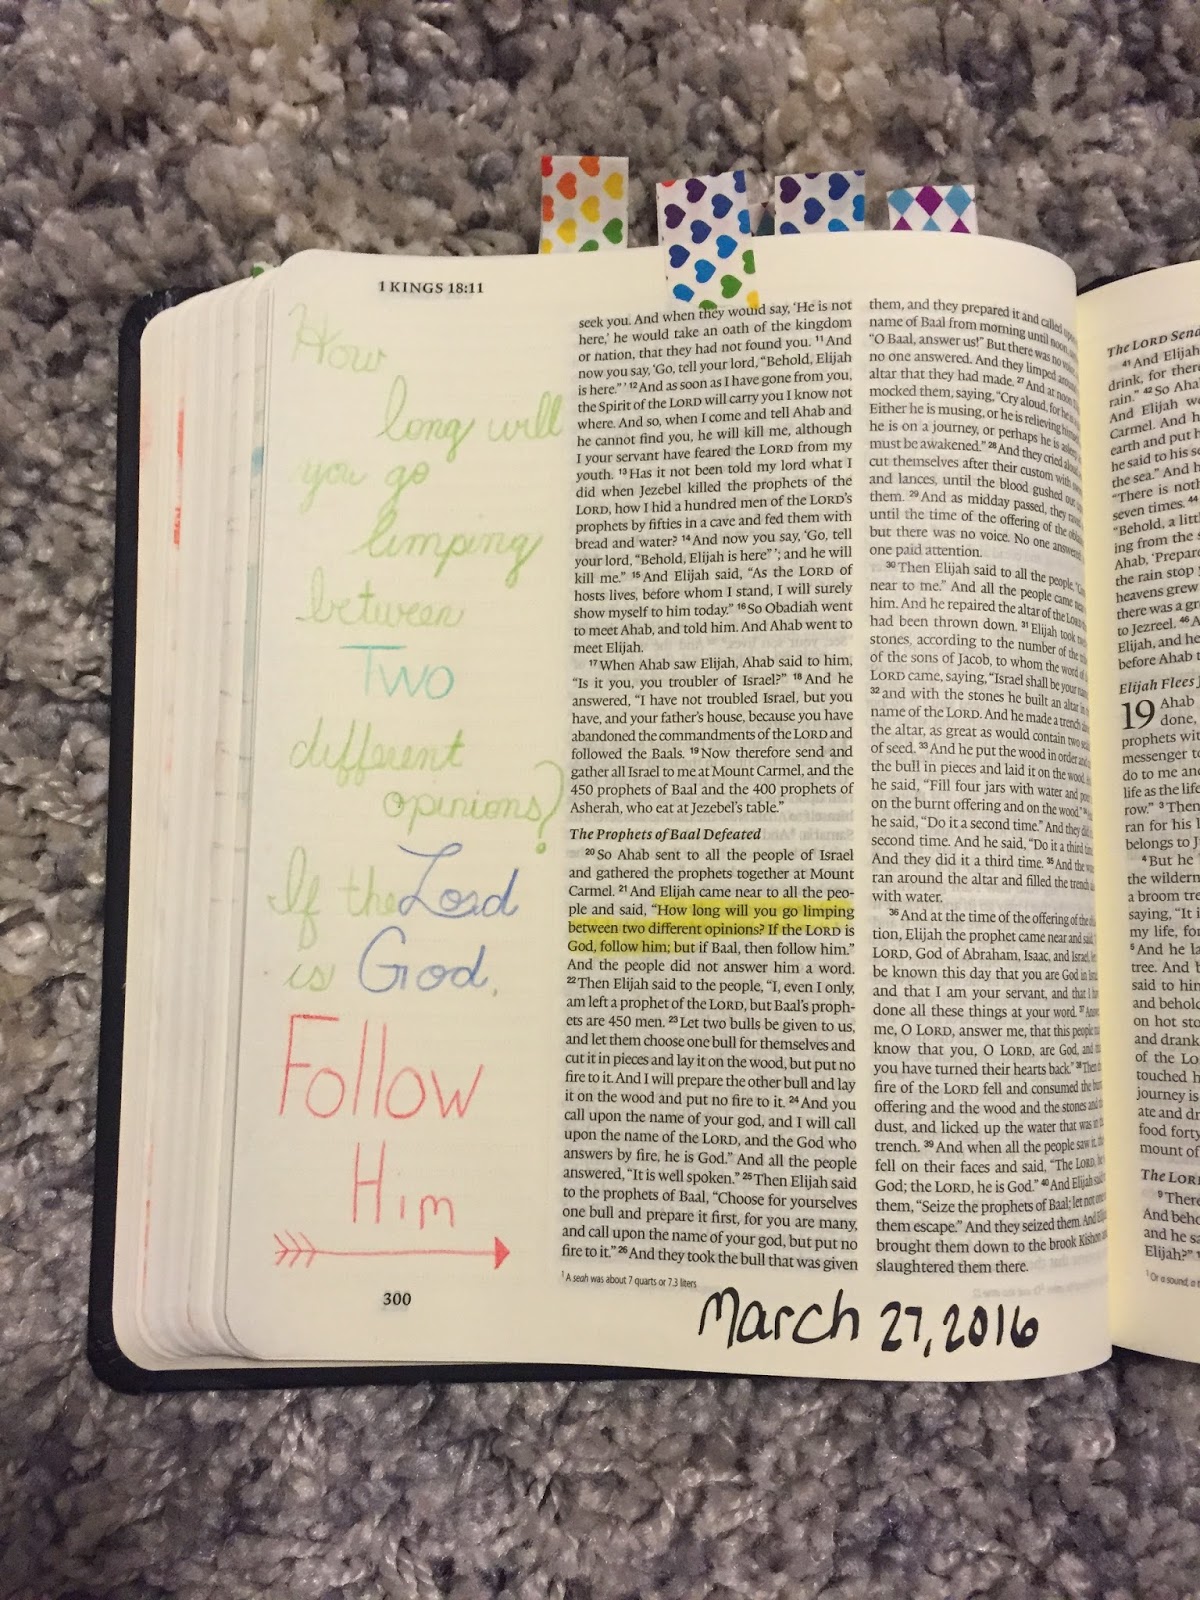 1 KINGS 18:11
How
long will
you go
limping
between
Two
different
opinions?
If the Lord
is God,
Follow
Him
300
seek you. And when they would say, ‘He is not
here,’ he would take an oath of the kingdom
or nation, that they had not found you. 11 And
now you say, ‘Go, tell your lord, “Behold, Elijah
is here.”’ 12 And as soon as I have gone from you,
the Spirit of the LORD will carry you I know not
where. And so, when I come and tell Ahab and
he cannot find you, he will kill me, although
I your servant have feared the LORD from my
youth. 13 Has it not been told my lord what I
did when Jezebel killed the prophets of the
LORD, how I hid a hundred men of the LORD’s
prophets by fifties in a cave and fed them with
bread and water? 14 And now you say, ‘Go, tell
your lord, “Behold, Elijah is here”’; and he will
kill me.” 15 And Elijah said, “As the LORD of
hosts lives, before whom I stand, I will surely
show myself to him today.” 16 So Obadiah went
to meet Ahab, and told him. And Ahab went to
meet Elijah.
17 When Ahab saw Elijah, Ahab said to him,
“Is it you, you troubler of Israel?” 18 And he
answered, “I have not troubled Israel, but you
have, and your father’s house, because you have
abandoned the commandments of the LORD and
followed the Baals. 19 Now therefore send and
gather all Israel to me at Mount Carmel, and the
450 prophets of Baal and the 400 prophets of
Asherah, who eat at Jezebel’s table.”
The Prophets of Baal Defeated
20 So Ahab sent to all the people of Israel
and gathered the prophets together at Mount
Carmel. 21 And Elijah came near to all the peo-
ple and said, “How long will you go limping
between two different opinions? If the LORD is
God, follow him; but if Baal, then follow him.”
And the people did not answer him a word.
22 Then Elijah said to the people, “I, even I only,
am left a prophet of the LORD, but Baal’s proph-
ets are 450 men. 23 Let two bulls be given to us,
and let them choose one bull for themselves and
cut it in pieces and lay it on the wood, but put no
fire to it. And I will prepare the other bull and lay
it on the wood and put no fire to it. 24 And you
call upon the name of your god, and I will call
upon the name of the LORD, and the God who
answers by fire, he is God.” And all the people
answered, “It is well spoken.” 25 Then Elijah said
to the prophets of Baal, “Choose for yourselves
one bull and prepare it first, for you are many,
and call upon the name of your god, but put no
fire to it.” 26 And they took the bull that was given
1 A seah was about 7 quarts or 7.3 liters
them, and they prepared it and called upon
name of Baal from morning until noon,
“O Baal, answer us!” But there was no
no one answered. And they limped around
altar that they had made. 27 And at noon
mocked them, saying, “Cry aloud, for he is
Either he is musing, or he is relieving
he is on a journey, or perhaps he is
must be awakened.” 28 And they cried
cut themselves after their custom with
and lances, until the blood gushed out
them. 29 And as midday passed, they
until the time of the offering of the
but there was no voice. No one answered
one paid attention.
30 Then Elijah said to all the people,
near to me.” And all the people came
him. And he repaired the altar of the LORD
had been thrown down. 31 Elijah took
stones, according to the number of the
of the sons of Jacob, to whom the word of
LORD came, saying, “Israel shall be your
32 and with the stones he built an altar in
name of the LORD. And he made a trench
the altar, as great as would contain two
of seed. 33 And he put the wood in order and
the bull in pieces and laid it on the wood.
he said, “Fill four jars with water and
on the burnt offering and on the wood.”
he said, “Do it a second time.” And they
second time. And he said, “Do it a third
And they did it a third time. 35 And the
ran around the altar and filled the trench
with water.
36 And at the time of the offering of the
tion, Elijah the prophet came near and said,
LORD, God of Abraham, Isaac, and Israel,
be known this day that you are God in
and that I am your servant, and that I
done all these things at your word. 37
me, O LORD, answer me, that this people
know that you, O LORD, are God, and
you have turned their hearts back.” 38
fire of the LORD fell and consumed the
offering and the wood and the stones and
dust, and licked up the water that was in
trench. 39 And when all the people saw it,
fell on their faces and said, “The LORD,
God; the LORD, he is God.” 40 And Elijah
them, “Seize the prophets of Baal; let not
them escape.” And they seized them. And
brought them down to the brook Kishon
slaughtered them there.
March 27, 2016
The LORD
41 And Elijah
drink, for
rain.” 42 So
And Elijah
Carmel. And
earth and put
he said to his
the sea.” And
“There is
seven times.
“Behold, a
ing from the
Ahab,
the rain stop
heavens grew
there was a
to Jezreel. 46
Elijah, and he
before Ahab
Elijah Flees
19 Ahab
done,
prophets
messenger to
do to me and
life as the life
row.” 3 Then
ran for his
belongs to
4 But he
the
a broom
saying, “It
my life, for
5 And he
tree. And
said to him
and
on hot
and drank
of the
touched
journey is
ate and
food forty
mount of
The
9 There
And
and he
Elijah?”